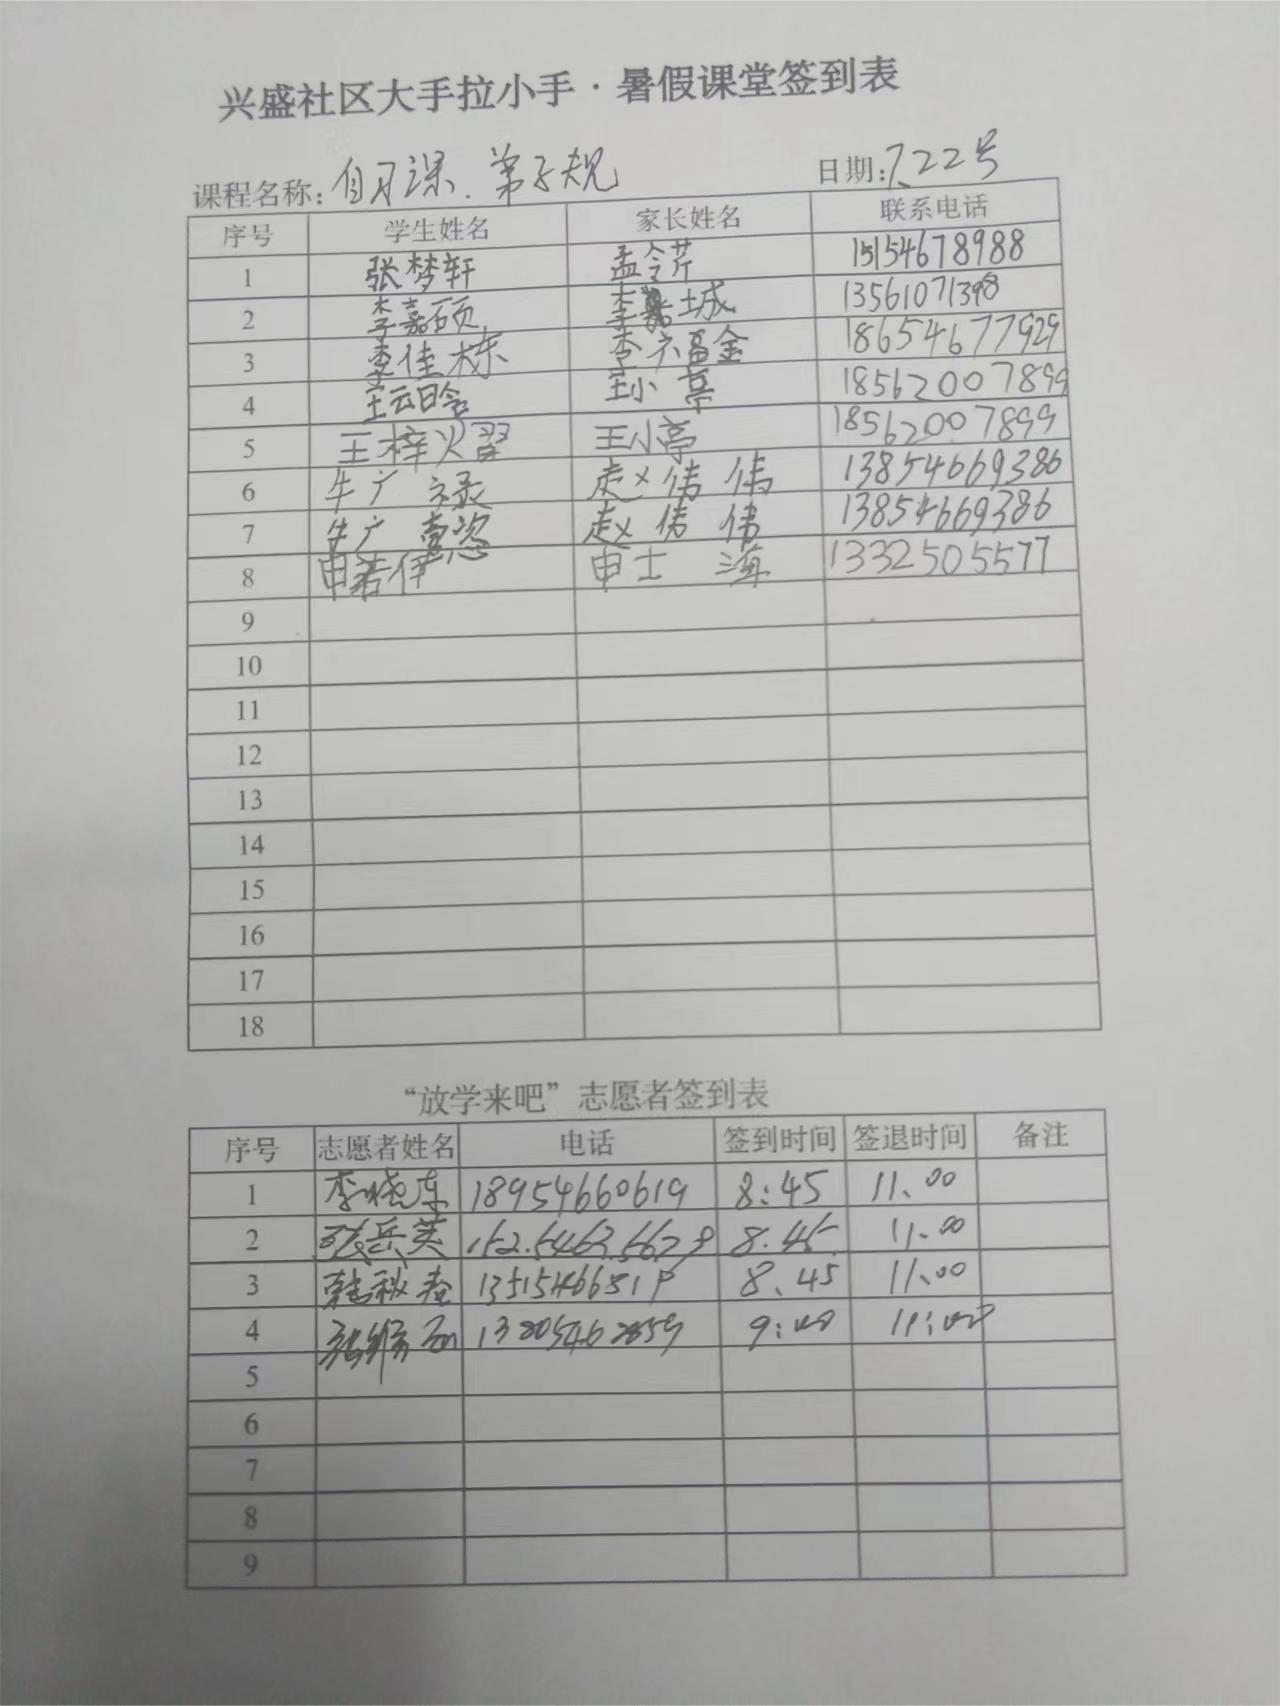 兴盛社区大手拉小手·暑假课堂签到表
课程名称：自习课、弟子规 日期：7.22号
序号 学生姓名 家长姓名 联系电话
1 张梦轩 孟令芹 15154678988
2 李嘉硕 李 城 13561071398
3 李佳栋 李 金 18654677929
4 王云晗 王小亭 18562007899
5 王梓熠 王小亭 18562007899
6 牛广禄 赵伟伟 13854669386
7 牛广 赵伟伟 13854669386
8 申若伊 申士海 1332505577
9
10
11
12
13
14
15
16
17
18
“放学来吧”志愿者签到表
序号 志愿者姓名 电话 签到时间 签退时间 备注
1 李晓东 18954660619 8:45 11.00
2 张岳英 8.45 11.00
3 韩秋 8.45 11.00
4 张 9:00 11:00
5
6
7
8
9